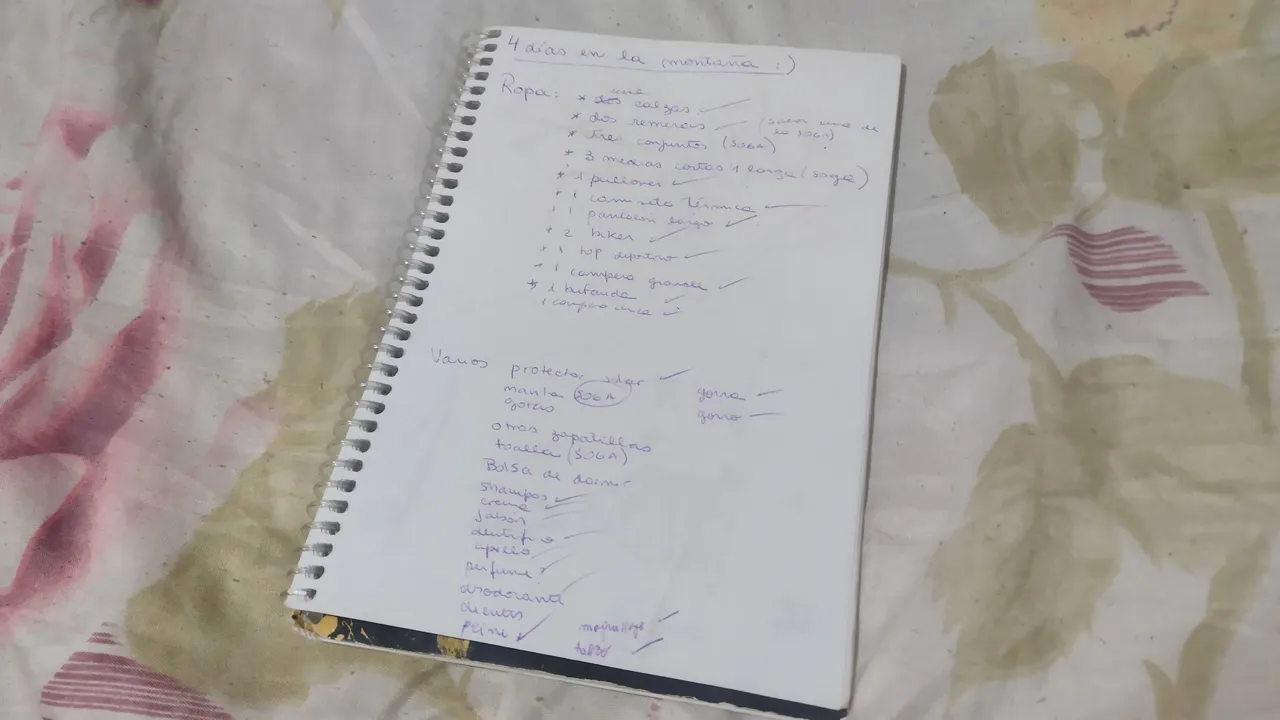 4 días en la montaña :)
Ropa:
* calzas
* dos remeras (sacar una de la SOGA)
* tre conjuntos (SOGA)
* 3 medias cortas 1 larga (soga)
* 1 pullover
* 1 camiseta térmica
* 1 pantalón largo
* 2 biker
* 1 top deportivo
* 1 campera grande
* 1 bufanda
1 campera chica
Varios
protector solar
manta SOGA
gorra
gorro
otras zapatillas
toalla (SOGA)
Bolsa de dormir
shampoo
crema
jabón
dentífrico
cepillo
perfume
desodorante
peine
maquillaje
talco